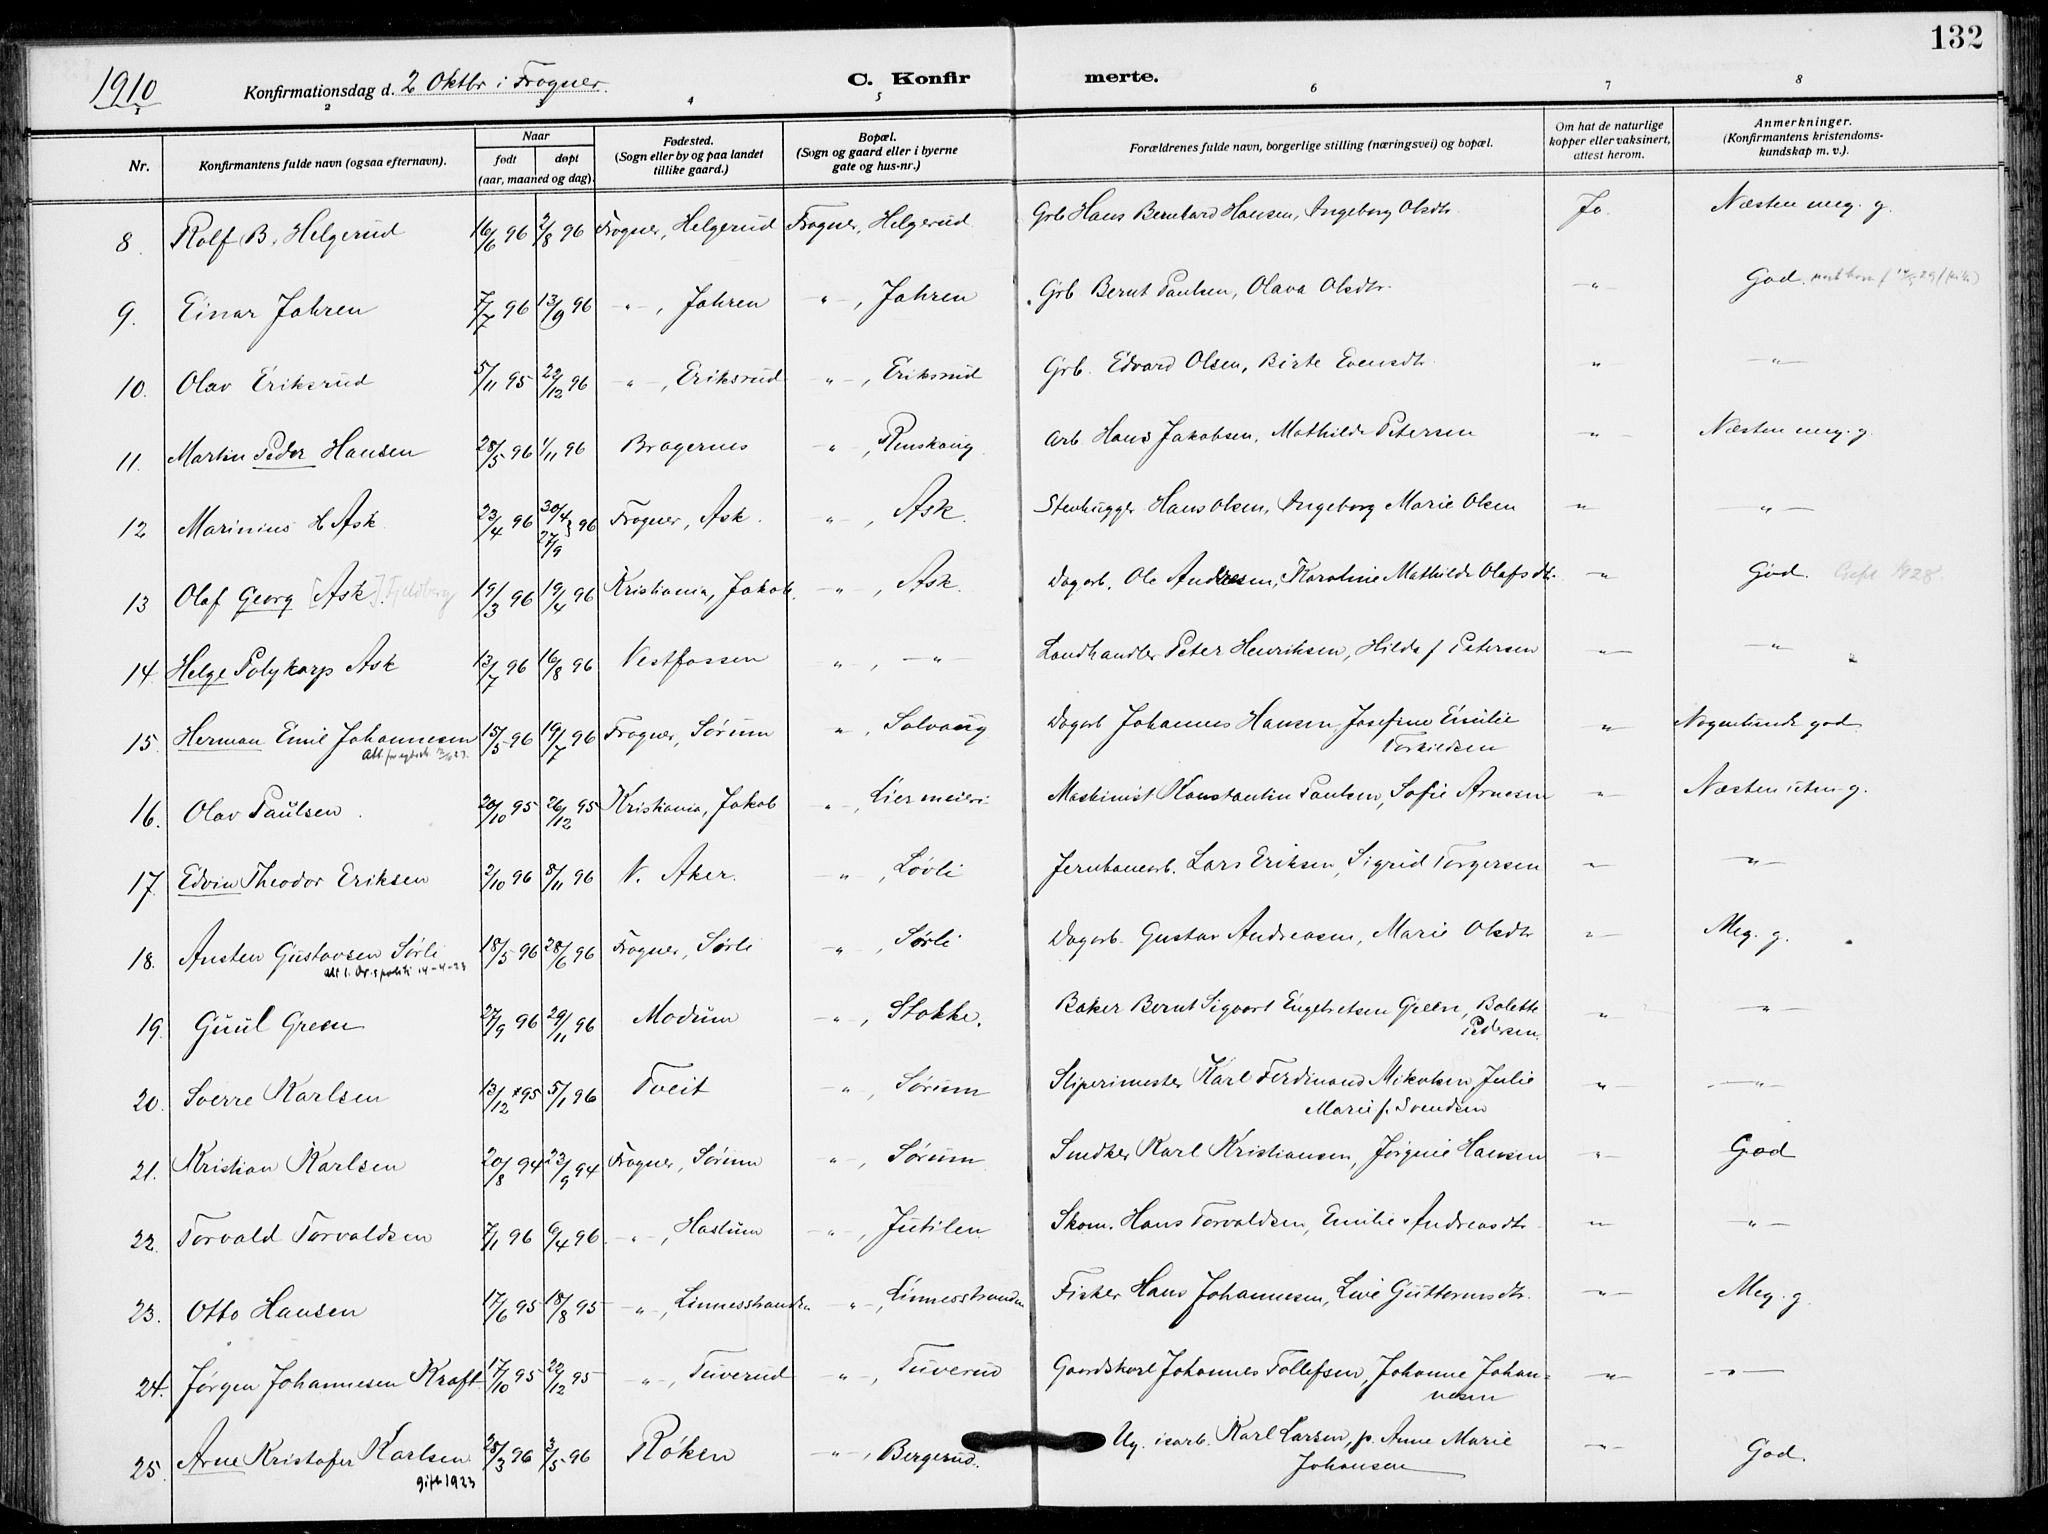 132
1910 Konfirmationsdag d. 2 Oktbr i Frogner. C. Konfirmerte.
1 2 3 4 5 6 7 8
Nr. Konfirmantens fulde navn (ogsaa efternavn). Naar født døpt (aar, maaned og dag). Fødested. (Sogn eller by og paa landet tillike gaard.) Bopæl. (Sogn og gaard eller i byerne gate og hus-nr.) Forældrenes fulde navn, borgerlige stilling (næringsvei) og bopæl. Om hat de naturlige kopper eller vaksinert, attest herom. Anmerkninger. (Konfirmantens kristendomskundskap m. v.).
8. Rolf B. Helgerud 16/6 96 2/8 96 Frogner, Helgerud Frogner, Helgerud Grb Hans Bernhard Hansen, Ingeborg Olsdtr. Ja. Næsten meg. g.
9. Einar Jahren 7/7 96 13/9 96 -"-, Jahren -"-, Jahren Grb. Bernt Paulsen, Olava Olsdtr. -"- God.
10. Olav Eriksrud 5/11 95 22/12 96 -"-, Eriksrud -"-, Eriksrud Grb. Edvard Olsen, Birte Evensdtr. -"- -"-
11. Martin Peder Hansen 28/5 96 1/11 96 Bragernes -"-, Renskaug Arb. Hans Jakobsen, Mathilde Petersen -"- Næsten meg. g.
12 Marinius H Ask. 23/4 96 30/4 27/9 } 96 Frogner, Ask. -"-, Ask. Stenhugger Hans Olsen, Ingeborg Marie Olsen -"- -"-
13 Olaf Georg [Ask]. Fjeldberg 19/3 96 19/4 96 Kristiania, Jakob. -"-, Ask. Dagarb. Ole Andresen, Karoline Mathilde Olafsdtr. -"- God. Gift 1928
14. Helge Polykarp Ask 13/7 96 16/8 96 Vestfossen -"-, -"- Landhandler Peter Henriksen, Hilda f Petersen -"- -"-
15. Herman Emil Johannesen 15/5 96 19/7 96 Frogner, Sørum -"-, Solvang Dagarb Johannes Hansen, Josefine Emilie
Torkildsen -"- Nogenlunde god.
16. Olav Paulsen 20/10 95 26/12 95 Kristiania, Jakob -"-, Liermeieri Maskinist Konstantin Paulsen, Sofie Arnesen -"- Næsten uten g.
17. Edvin Theodor Eriksen 2/10 96 8/11 96 V. Aker. -"-, Løvli Jernbanearb. Lars Eriksen, Sigrid Torgersen -"- -"-
18. Austen Gustavsen Sørli 18/5 96 28/6 96 Frogner, Sørli -"-, Sørli Dagarb. Gustav Andreasen, Marie Olsdtr -"- Meg. g.
19. Guul Green 27/9 96 29/11 96 Modum -"-, Stokke. Baker Bernt Sigvart Engebretsen Green, Bolette
Pedersen. -"- -"-
20. Sverre Karlsen 13/12 95 5/1 96 Tveit -"-, Sørum Sliperimester Karl Ferdinand Mikalsen, Julie
Marie f. Svendsen -"- -"-
21. Kristian Karlsen 20/8 94 23/9 94 Frogner, Sørum -"-, Sørum Snedker Karl Kristiansen, Jørgine Hansen -"- God
22. Torvald Torvaldsen 7/1 96 6/4 96. -"-, Haslum -"-, Jutilen Skom. Hans Torvaldsen, Emilie Andreasdtr -"- -"-
23. Otto Hansen 17/6 95 18/8 95 -"-, Linnesstranden -"-, Linnesstranden Fisker Hans Johannesen, Live Guttormsdtr. -"- Meg. g.
24. Jørgen Johannesen Kraft 17/10 95 22/12 95 -"-, Tuverud -"-, Tuverud Gaardskarl Johannes Tollefsen, Johanne Johan=
nesen -"- -"-
25. Arne Kristofer Karlsen 25/3 96 3/5 96 Røken -"-, Bergerud. Ug. isarb. Karl Larsen, p. Anne Marie
gift 1923 Johansen -"- God.